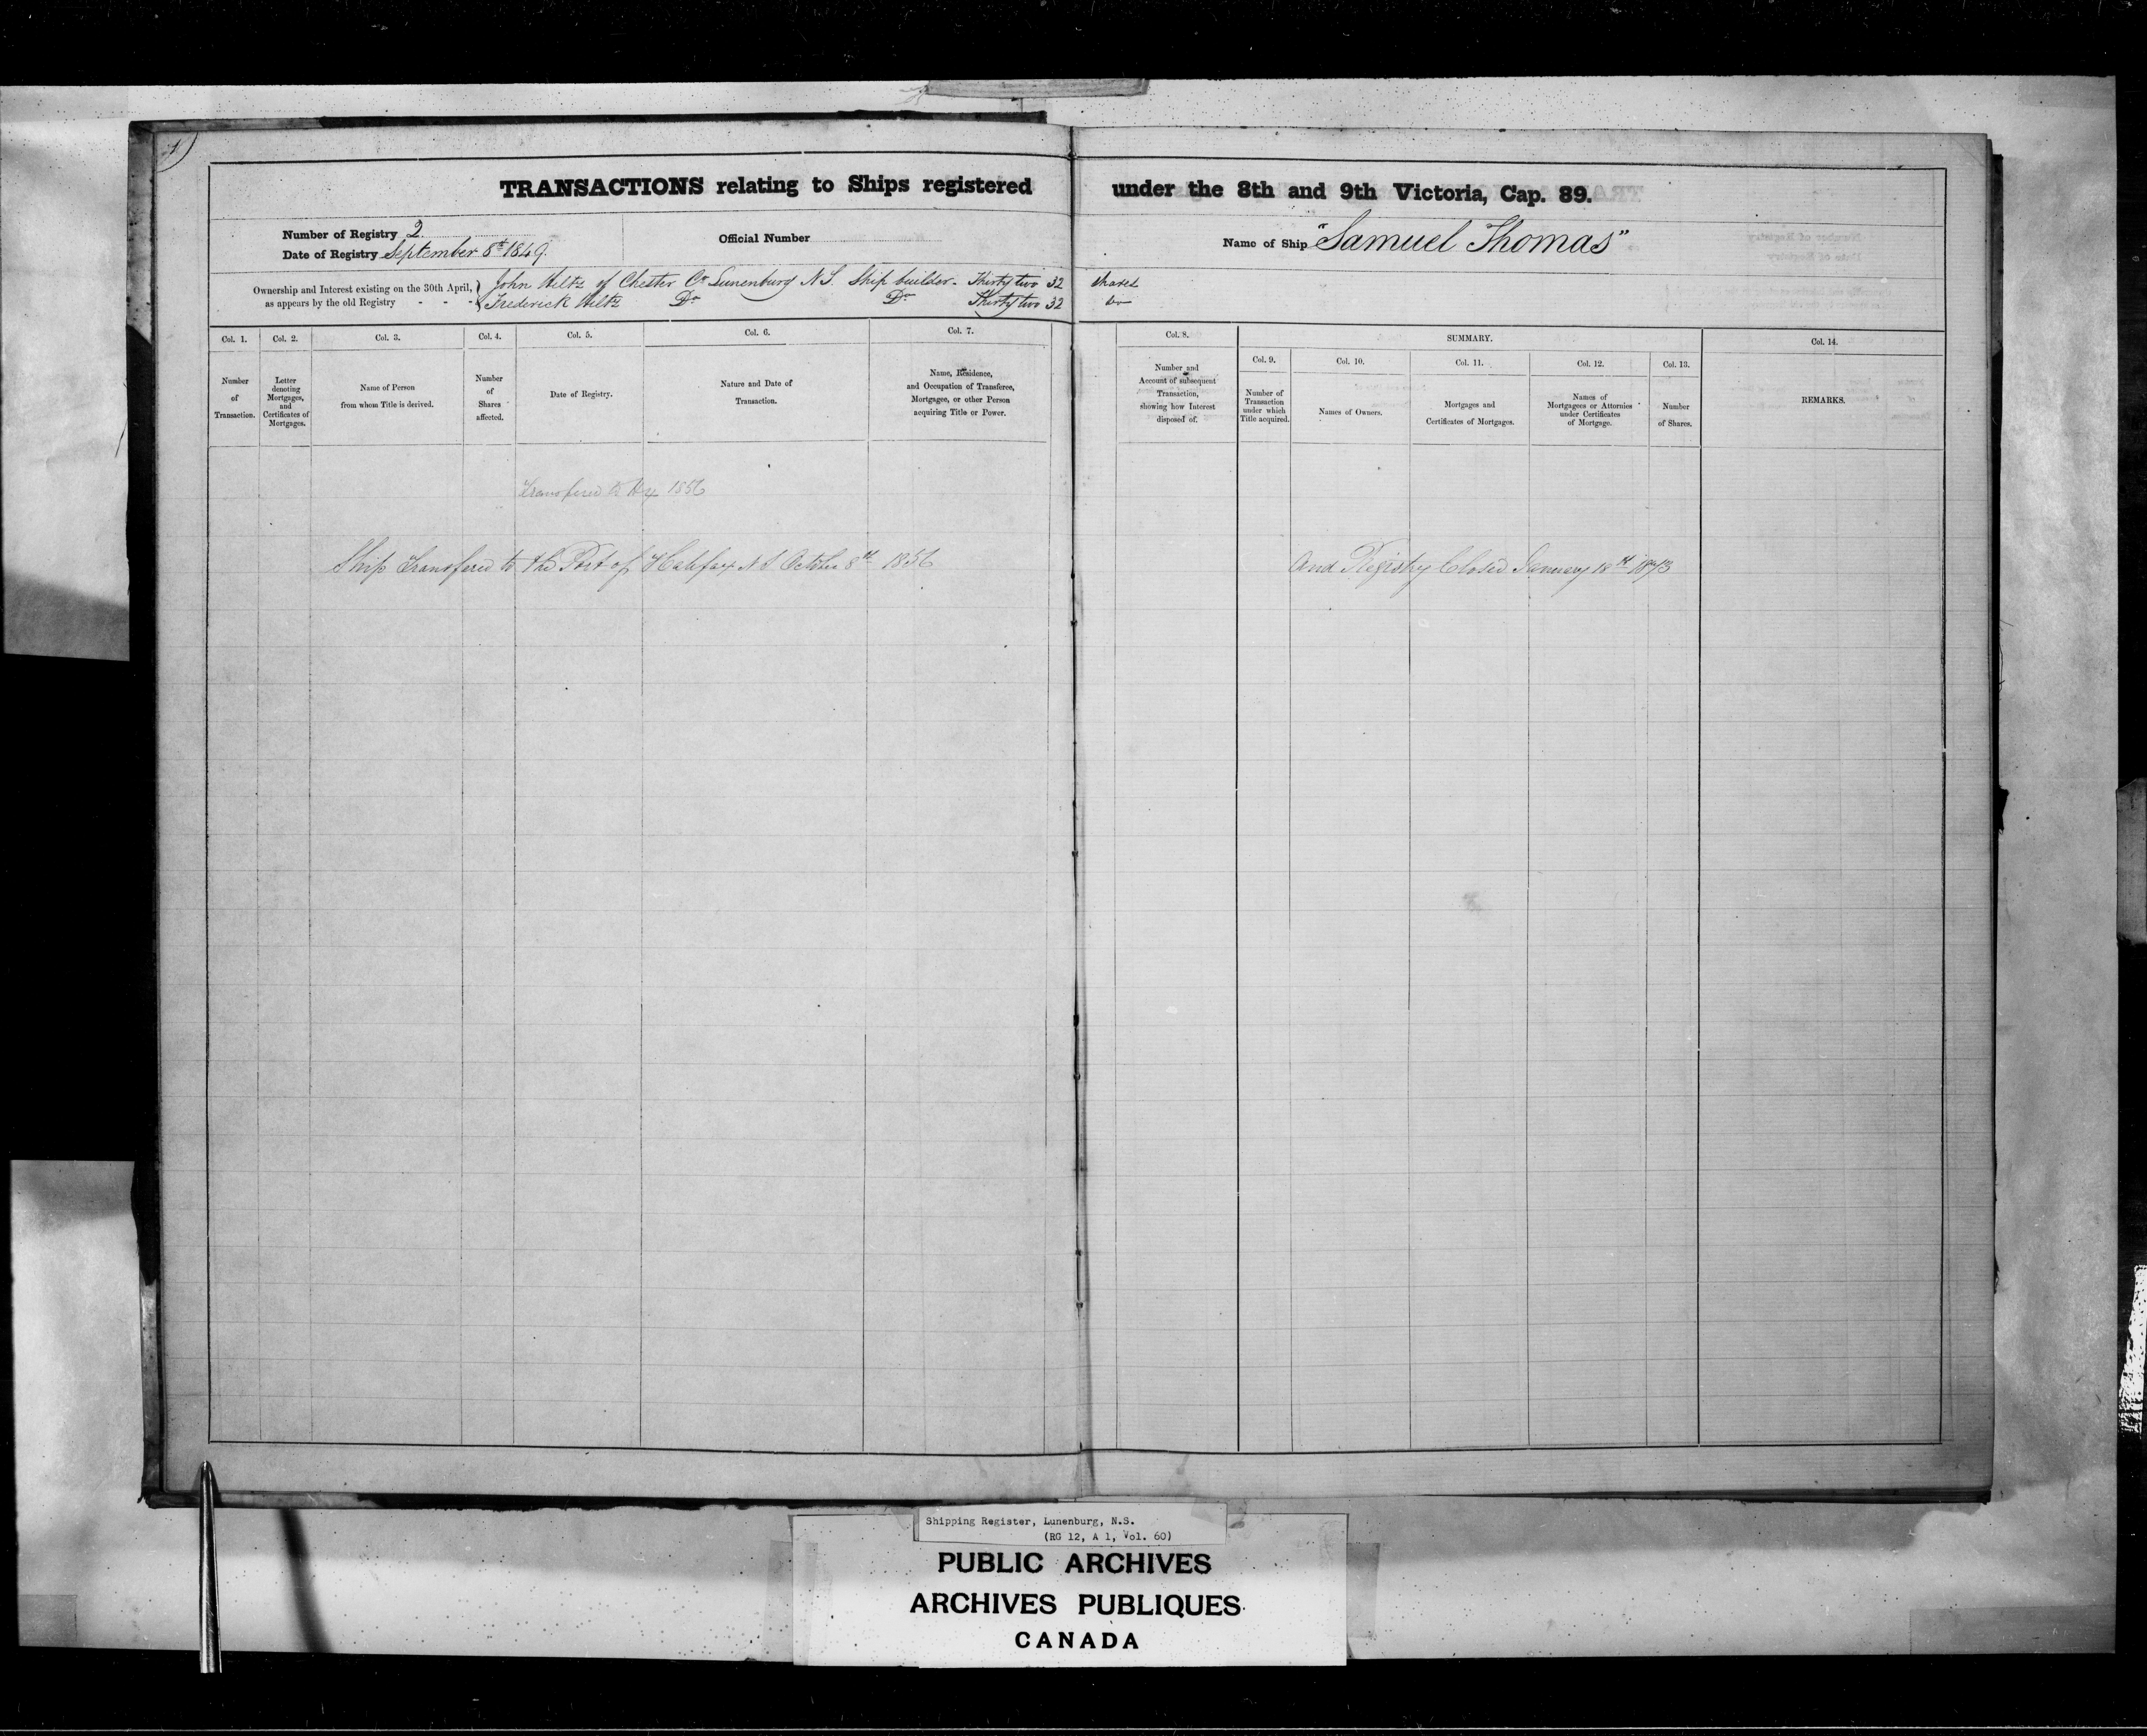 1)
TRANSACTIONS relating to Ships registered under the 8th and 9th Victoria, Cap. 89.
Number of Registry 2
Date of Registry September 8th 1849.
Official Number
Name of Ship "Samuel Thomas"
Ownership and Interest existing on the 30th April, as appears by the old Registry - - -
John Hiltz of Chester Co Lunenburg N.S. Ship builder - Thirty two 32 shares
Frederick Hiltz Do Do Thirty two 32 Do
Col. 1.
Number of Transaction.
Col. 2.
Letter denoting Mortgages, and Certificates of Mortgages.
Col. 3.
Name of Person from whom Title is derived.
Col. 4.
Number of Shares affected.
Col. 5.
Date of Registry.
Col. 6.
Nature and Date of Transaction.
Col. 7.
Name, Residence, and Occupation of Transferee, Mortgagee, or other Person acquiring Title or Power.
Col. 8.
Number and Account of subsequent Transaction, showing how Interest disposed of.
SUMMARY.
Col. 9.
Number of Transaction under which Title acquired.
Col. 10.
Names of Owners.
Col. 11.
Mortgages and Certificates of Mortgages.
Col. 12.
Names of Mortgagees or Attornies under Certificates of Mortgage.
Col. 13.
Number of Shares.
Col. 14.
REMARKS.
Transfered to Hx 1856
Ship Transfered to the Port of Halifax N S October 8th 1856
And Registry Closed January 18th 1873
Shipping Register, Lunenburg, N.S.
(RG 12, A 1, Vol. 60)
PUBLIC ARCHIVES
ARCHIVES PUBLIQUES
CANADA